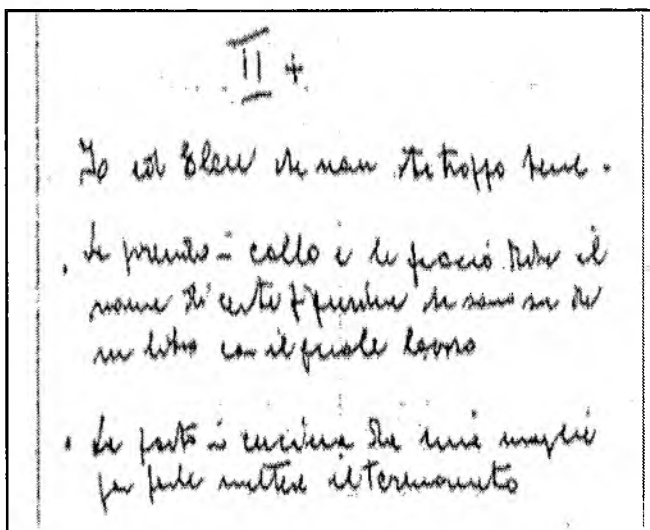 II +
Io ed Elen che non sta troppo bene.
. La prendo in collo e le faccio dire il
nome di certe figurine che sono su di
un libro con il quale lavoro
. La porto in cucina da mia moglie
per farle mettere il termometro